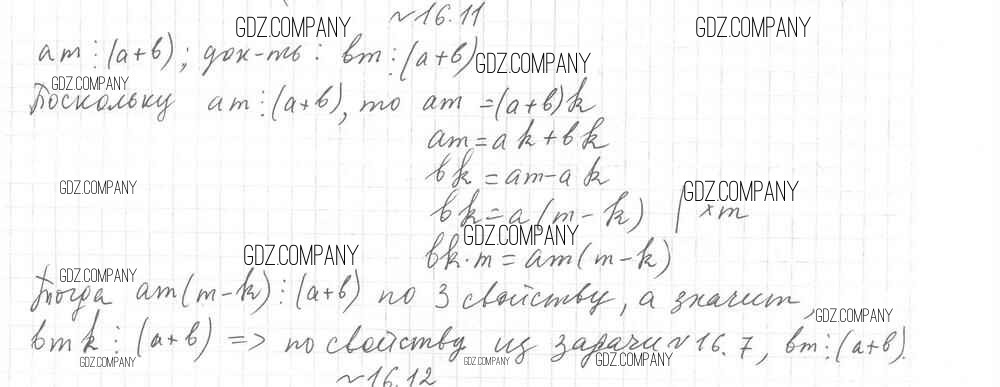 №16.11
GDZ.COMPANY GDZ.COMPANY
am⋮(a+b); док-ть: bm⋮(a+b) GDZ.COMPANY
GDZ.COMPANY
Поскольку am⋮(a+b), то am=(a+b)k
am=ak+bk
bk=am-ak
GDZ.COMPANY GDZ.COMPANY
bk=a(m-k) | ×m
GDZ.COMPANY
bk·m=am(m-k)
GDZ.COMPANY
GDZ.COMPANY
Тогда am(m-k)⋮(a+b) по 3 свойству, а значит,
GDZ.COMPANY
bmk⋮(a+b) => по свойству из задачи №16.7, bm⋮(a+b).
GDZ.COMPANY GDZ.COMPANY GDZ.COMPANY
№16.12